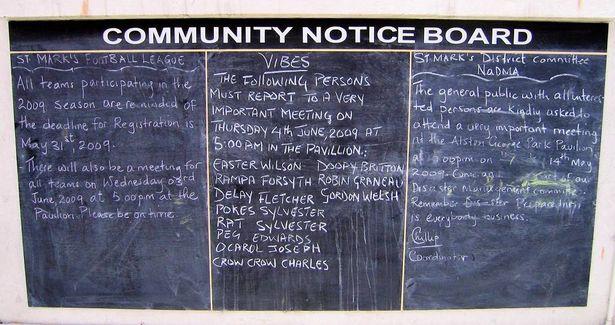 COMMUNITY NOTICE BOARD
ST. MARK'S FOOTBALL LEAGUE
All teams participating in the
2009 Season are reminded of
the deadline for Registration is
May 31st, 2009.
- There will also be a meeting for
all teams on Wednesday 03rd
June, 2009 at 5:00pm at the
Pavilion. Please be on time.
VIBES
THE FOLLOWING PERSONS
MUST REPORT TO A VERY
IMPORTANT MEETING ON
THURSDAY 4th JUNE, 2009 AT
5:00 AM IN THE PAVILLION:
EASTER WILSON DOOPY BRITTON
RAMPA FORSYTH ROBIN GRANEAU
DELAY FLETCHER GORDON WELSH
POKES SYLVESTER
RAT SYLVESTER
PEG EDWARDS
OCAROL JOSEPH
CROW CROW CHARLES
ST. MARK'S District committee
NaDMA
The general public with all interes
ted persons are Kindly asked to
attend a very important meeting
at the Alston George Park Pavilion
at 5:00pm on 14th May
2009. Come as part of our
Disaster Management committee
Remember Disaster Preparedness
is everybody business.
Phillip
Coordinator